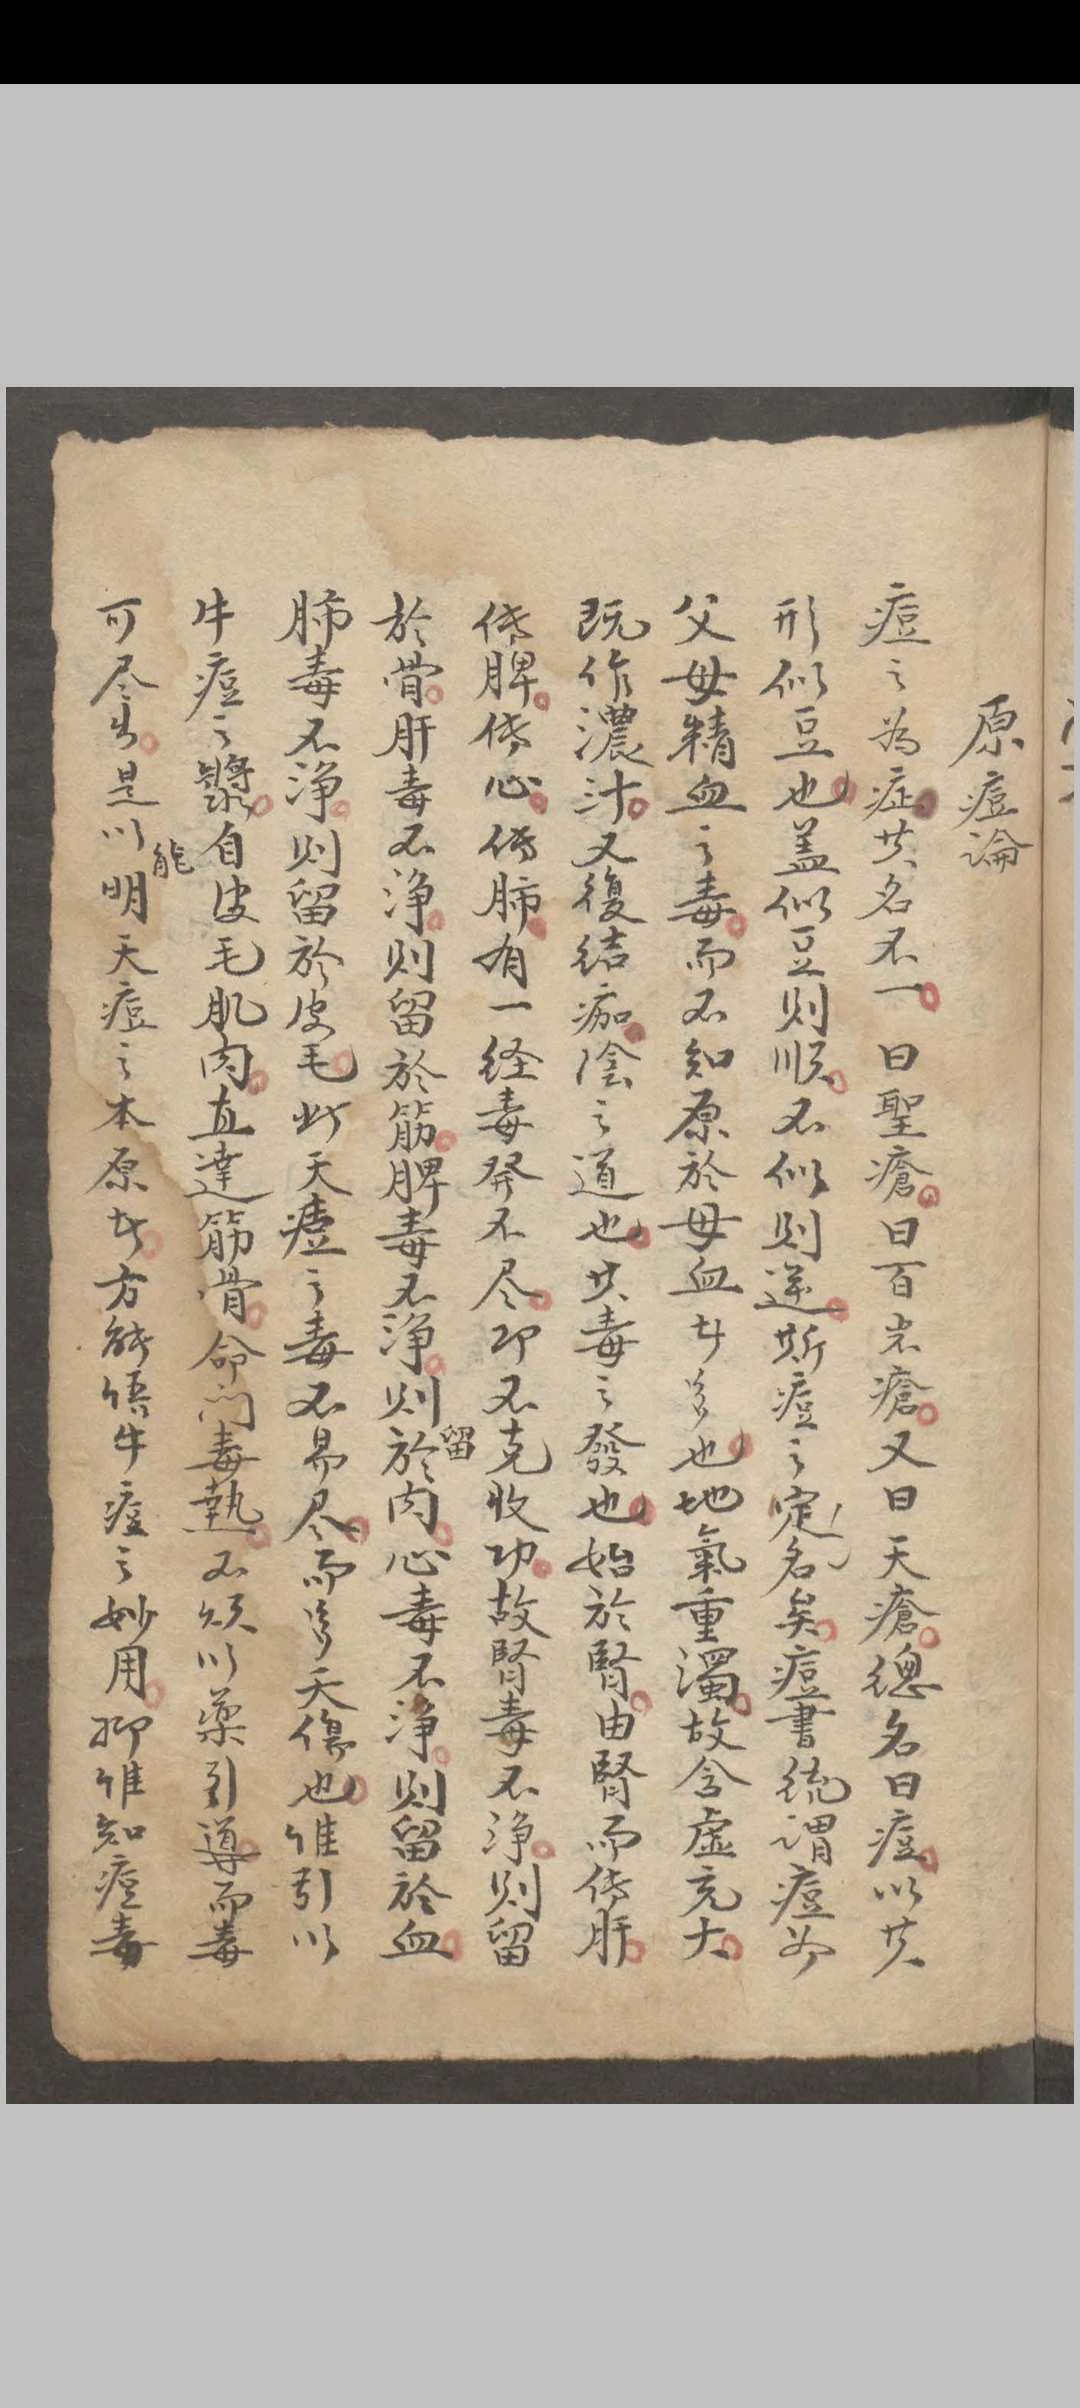 原痘論
痘之為症其名不一曰聖瘡曰百岁瘡又曰天瘡總名曰痘以其
形似豆也盖似豆則順不似則逆斯痘之定名矣痘書統謂痘出
父母精血之毒而不知原於母血者多也地氣重濁故含虛充大
既作濃汁又復结痂陰之道也其毒之發也始於腎由腎而传肝
传脾传心传肺有一经毒發不尽即不克收功故腎毒不净則留
於骨肝毒不净則留於筋脾毒不净則留於肉心毒不净則留於血
肺毒不净則留於皮毛此天痘之毒不易尽而多夭傷也惟引以
牛痘之漿能自皮毛肌肉直達筋骨命門毒熱不須以藥引導而毒
可尽出是以明天痘之本原者方能悟牛痘之妙用抑惟知痘毒